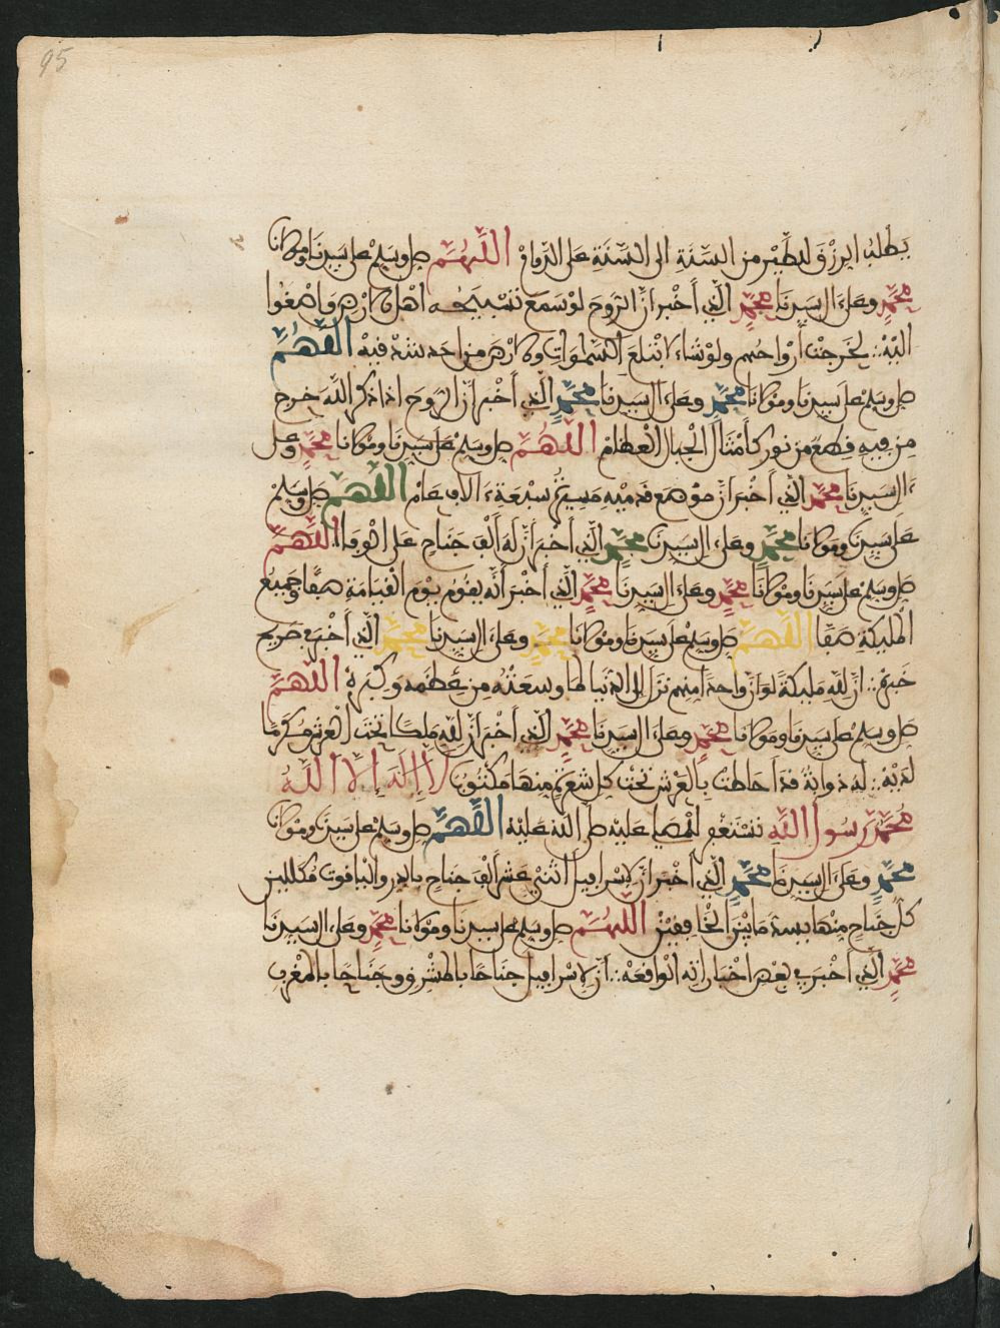 95
يطلب الرزق للطير من السنة الى السنة على الدوام اللهم صل وسلم على سيدنا ومولانا
محمد وعلى ءال سيدنا محمد الذي أخبر أن الروح لو سمع تسبيحه اهل الارض واصغوا
اليه لخرجت أرواحهم ولو شاء لابتلع السموات والارض من احد شدقيه اللهم
صل وسلم على سيدنا ومولانا محمد وعلى ءال سيدنا محمد الذي أخبر أن الروح اذا ذكر الله خرج
من فيه قطع من نور كأمثال الجبال العظام اللهم صل وسلم على سيدنا ومولانا محمد وعلى
ءال سيدنا محمد الذي أخبر أن موضع قدميه مسيرة سبعة ءالاف عام اللهم صل وسلم
على سيدنا ومولانا محمد وعلى ءال سيدنا محمد الذي أخبر أن له ألف جناح على الوفا اللهم
صل وسلم على سيدنا ومولانا محمد وعلى ءال سيدنا محمد الذي أخبر أنه يقوم يوم القيامة صفا وجميع
الملئكة صفا اللهم صل وسلم على سيدنا ومولانا محمد وعلى ءال سيدنا محمد الذي أخبر في صريح
خبره ان لله ملئكة لو ان واحدا منهم نزل الى الدنيا لما وسعته من عظمه وكبره اللهم
صل وسلم على سيدنا ومولانا محمد وعلى ءال سيدنا محمد الذي أخبر أن لله ملكا تحت العرش مكرما
لديه له ذوابة قد احاطت بالعرش تحت كل شعرة منها مكتوب لا إله إلا الله
محمد رسول الله تستغفر لمن صلى عليه صلى الله عليه اللهم صل وسلم على سيدنا ومولانا
محمد وعلى ءال سيدنا محمد الذي أخبر أن لإسرافيل اثني عشر ألف جناح بالدر والياقوت مكللين
كل جناح منها يسد ما بين الخافقين اللهم صل وسلم على سيدنا ومولانا محمد وعلى ءال سيدنا
محمد الذي أخبر في بعض اخباراته الواقعة أن لإسرافيل جناحا بالمشرق وجناحا بالمغرب